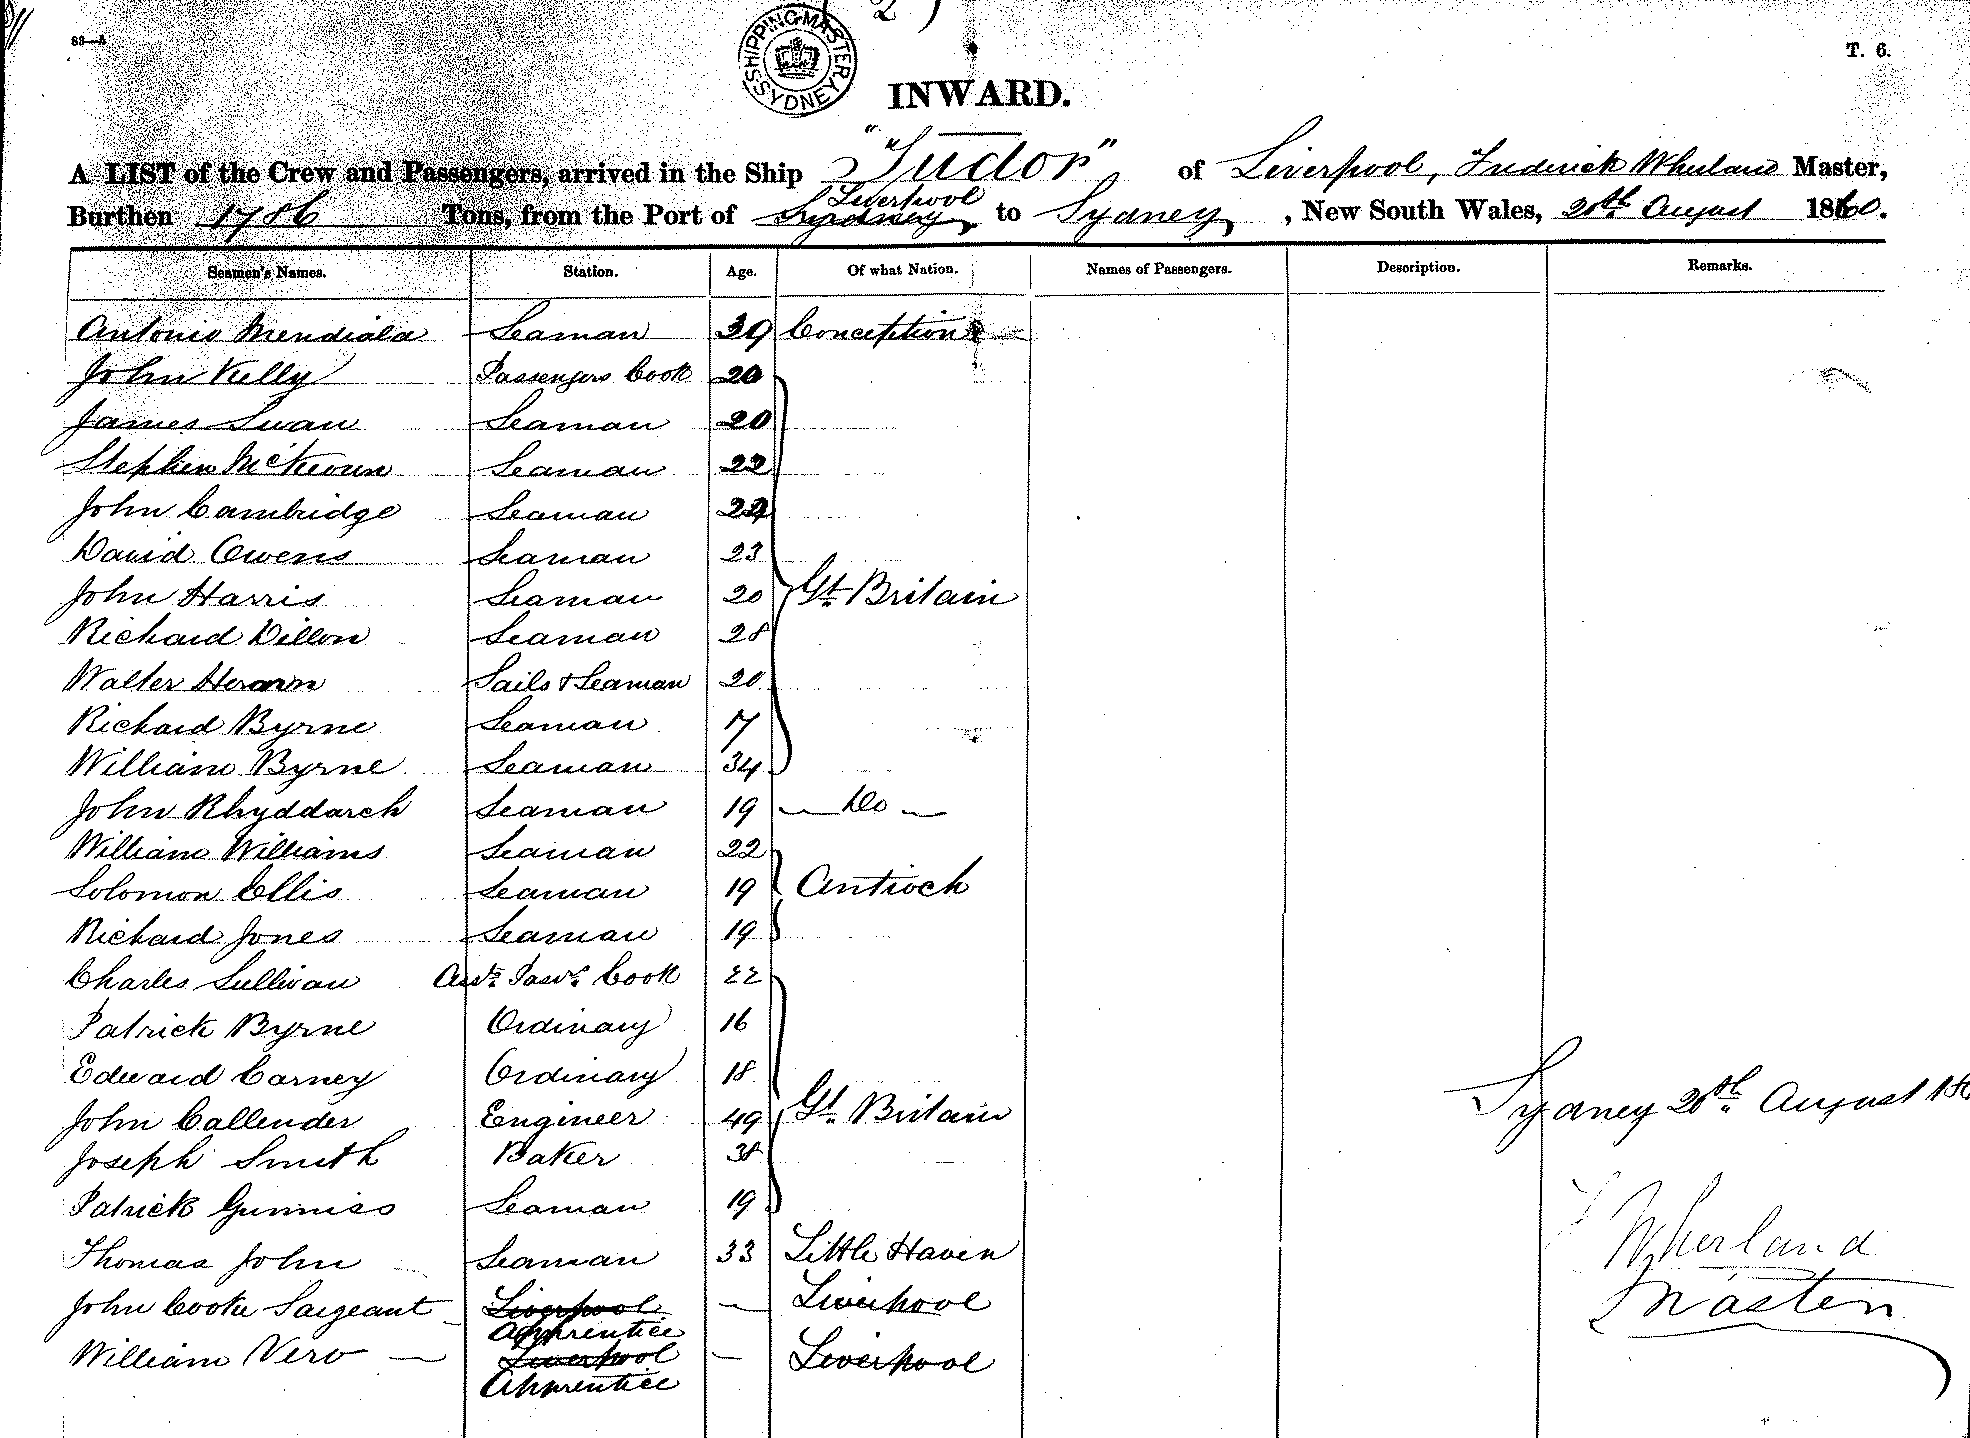 2)
83—A
SHIPPING MASTER SYDNEY
T. 6.
INWARD.
A LIST of the Crew and Passengers, arrived in the Ship "Tudor" of Liverpool, Frederick Wherland Master,
Liverpool
Burthen 1786 Tons, from the Port of Sydney to Sydney, New South Wales, 20th August 1860.
Seamen's Names. Station. Age. Of what Nation. Names of Passengers. Description. Remarks.
Antonio Mendiala Seaman 39 Conception
John Kelly Passengers Cook 20
James Swan Seaman 20
Stephen McKeown Seaman 22
John Cambridge Seaman
David Owens Seaman 23
John Harris Seaman 20 Gt. Britain
Richard Dillon Seaman 28
Walter Sails & Seaman 20
Richard Byrne Seaman 17
William Byrne Seaman 34
John Rhyddarch Seaman 19 — Do —
William Williams Seaman 22
Solomon Ellis Seaman 19 Antioch
Richard Jones Seaman 19
Charles Sullivan Cook 22
Patrick Byrne Ordinary 16
Edward Carney Ordinary 18
John Callender Engineer 49 Gt. Britain
Joseph Smith Baker 38
Patrick Seaman 19
Thomas John Seaman 33 Little Haven
John Cooke Sargeant Liverpool — Liverpool
Apprentice
William Vero — Liverpool — Liverpool
Apprentice
Sydney 20th August 18
F Wherland
Master